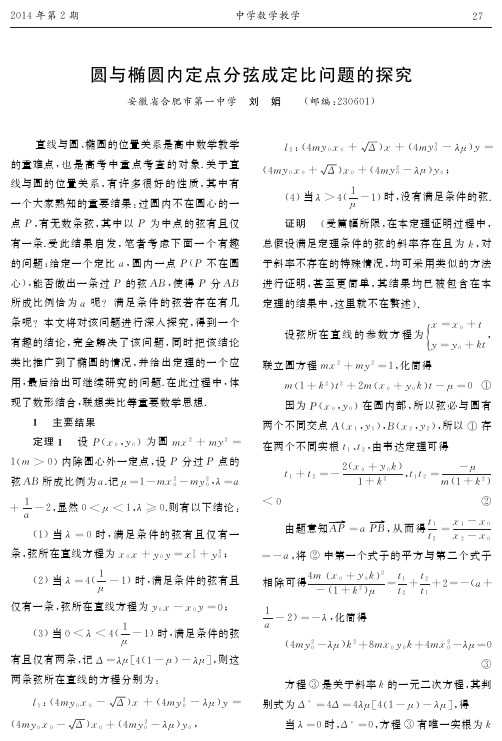 2014 年第 2 期 中学数学教学 27
圆与椭圆内定点分弦成定比问题的探究
安徽省合肥市第一中学 刘 娟 (邮编:230601)
直线与圆、椭圆的位置关系是高中数学教学
的重难点,也是高考中重点考查的对象.关于直
线与圆的位置关系,有许多很好的性质,其中有
一个大家熟知的重要结果:过圆内不在圆心的一
点 P,有无数条弦,其中以 P 为中点的弦有且仅
有一条.受此结果启发,笔者考虑下面一个有趣
的问题:给定一个定比 a,圆内一点 P(P 不在圆
心),能否做出一条过 P 的弦 AB,使得 P 分 AB
所成比例恰为 a 呢? 满足条件的弦若存在有几
条呢? 本文将对该问题进行深入探究,得到一个
有趣的结论,完全解决了该问题,同时把该结论
类比推广到了椭圆的情况,并给出定理的一个应
用,最后给出可继续研究的问题.在此过程中,体
现了数形结合,联想类比等重要数学思想.
1 主要结果
定理 1 设 P(x₀,y₀) 为圆 mx² + my² =
1(m > 0) 内除圆心外一定点,设 P 分过 P 点的
弦 AB 所成比例为 a.记 μ=1-mx₀²-my₀²,λ=a
+ 1/a -2,显然 0 < μ < 1,λ ≥ 0.则有以下结论:
(1) 当 λ = 0 时,满足条件的弦有且仅有一
条,弦所在直线方程为 x₀x + y₀y = x₀² + y₀²;
(2) 当 λ = 4(1/μ - 1) 时,满足条件的弦有且
仅有一条,弦所在直线方程为 y₀x - x₀y = 0;
(3) 当 0 < λ < 4(1/μ - 1) 时,满足条件的弦
有且仅有两条,记 Δ = λμ[4(1 - μ) - λμ],则这
两条弦所在直线的方程分别为:
l₁:(4my₀x₀ - √Δ)x + (4my₀² - λμ)y =
(4my₀x₀ - √Δ)x₀ + (4my₀² - λμ)y₀,
l₂:(4my₀x₀ + √Δ)x + (4my₀² - λμ)y =
(4my₀x₀ + √Δ)x₀ + (4my₀² - λμ)y₀;
(4) 当 λ > 4(1/μ - 1) 时,没有满足条件的弦.
证明 (受篇幅所限,在本定理证明过程中,
总假设满足定理条件的弦的斜率存在且为 k,对
于斜率不存在的特殊情况,均可采用类似的方法
进行证明,甚至更简单,其结果均已被包含在本
定理的结果中,这里就不在赘述).
设弦所在直线的参数方程为 {x = x₀ + t
y = y₀ + kt,
联立圆方程 mx² + my² = 1,化简得
m(1 + k²)t² + 2m(x₀ + y₀k)t - μ = 0 ①
因为 P(x₀,y₀) 在圆内部,所以弦必与圆有
两个不同交点 A(x₁,y₁),B(x₂,y₂),所以 ① 存
在两个不同实根 t₁,t₂,由韦达定理可得
t₁ + t₂ = - 2(x₀ + y₀k)/(1 + k²),t₁t₂ = -μ/(m(1 + k²))
< 0 ②
由题意知 AP→ = a PB→,从而得 t₁/t₂ = (x₁ - x₀)/(x₂ - x₀)
= -a,将 ② 中第一个式子的平方与第二个式子
相除可得 4m (x₀ + y₀k)²/(-(1 + k²)μ) = t₁/t₂ + t₂/t₁ + 2 = -(a +
1/a - 2) = -λ,化简得
(4my₀² - λμ)k² + 8mx₀y₀k + 4mx₀² - λμ = 0
③
方程 ③ 是关于斜率 k 的一元二次方程,其判
别式为 Δ* = 4Δ = 4λμ[4(1 - μ) - λμ],得
当 λ = 0 时,Δ* = 0,方程 ③ 有唯一实根为 k